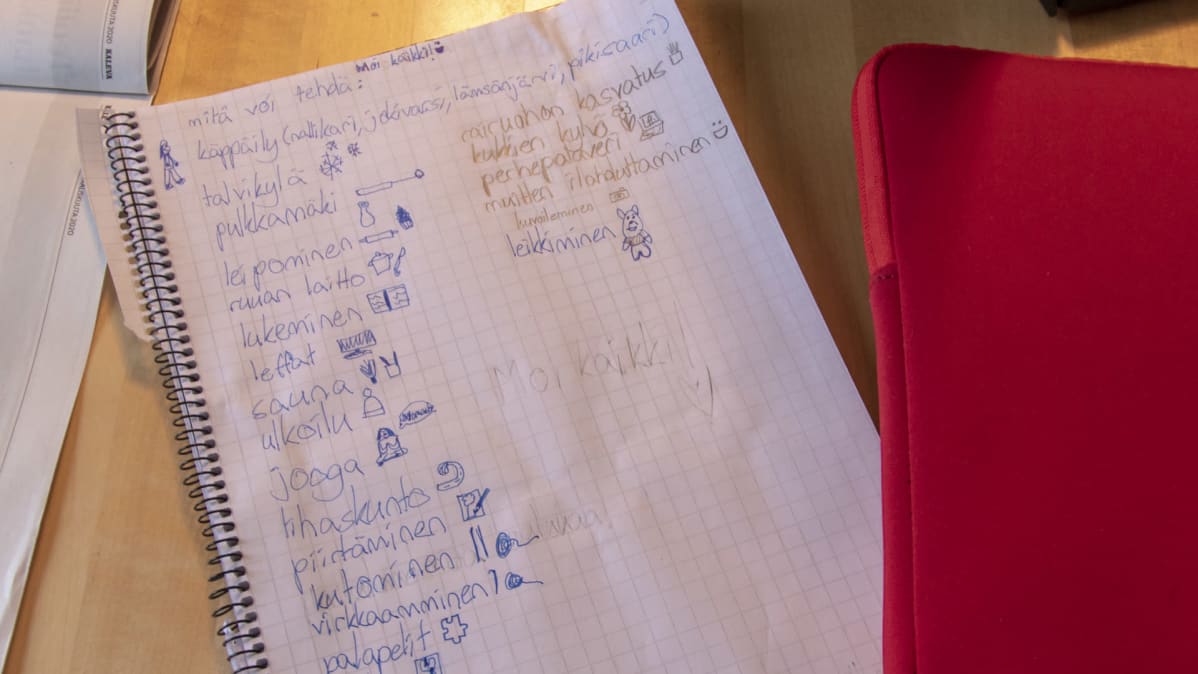 KALEVA
Moi kaikki!
mitä voi tehdä:
käppäily (nallikari, jokivarsi, lämsänjärvi, pikisaari)
talvikylä
pulkkamäki
leipominen
ruuan laitto
lukeminen
leffat
sauna
ulkoilu
jooga
lihaskunto
piirtäminen
kutominen
virkkaamminen
palapelit
rairuohon kasvatus
kukkien kuhō
perhepalaveri
muitten ilahduttaminen
kuvaileminen
leikkiminen
Moi kaikki!